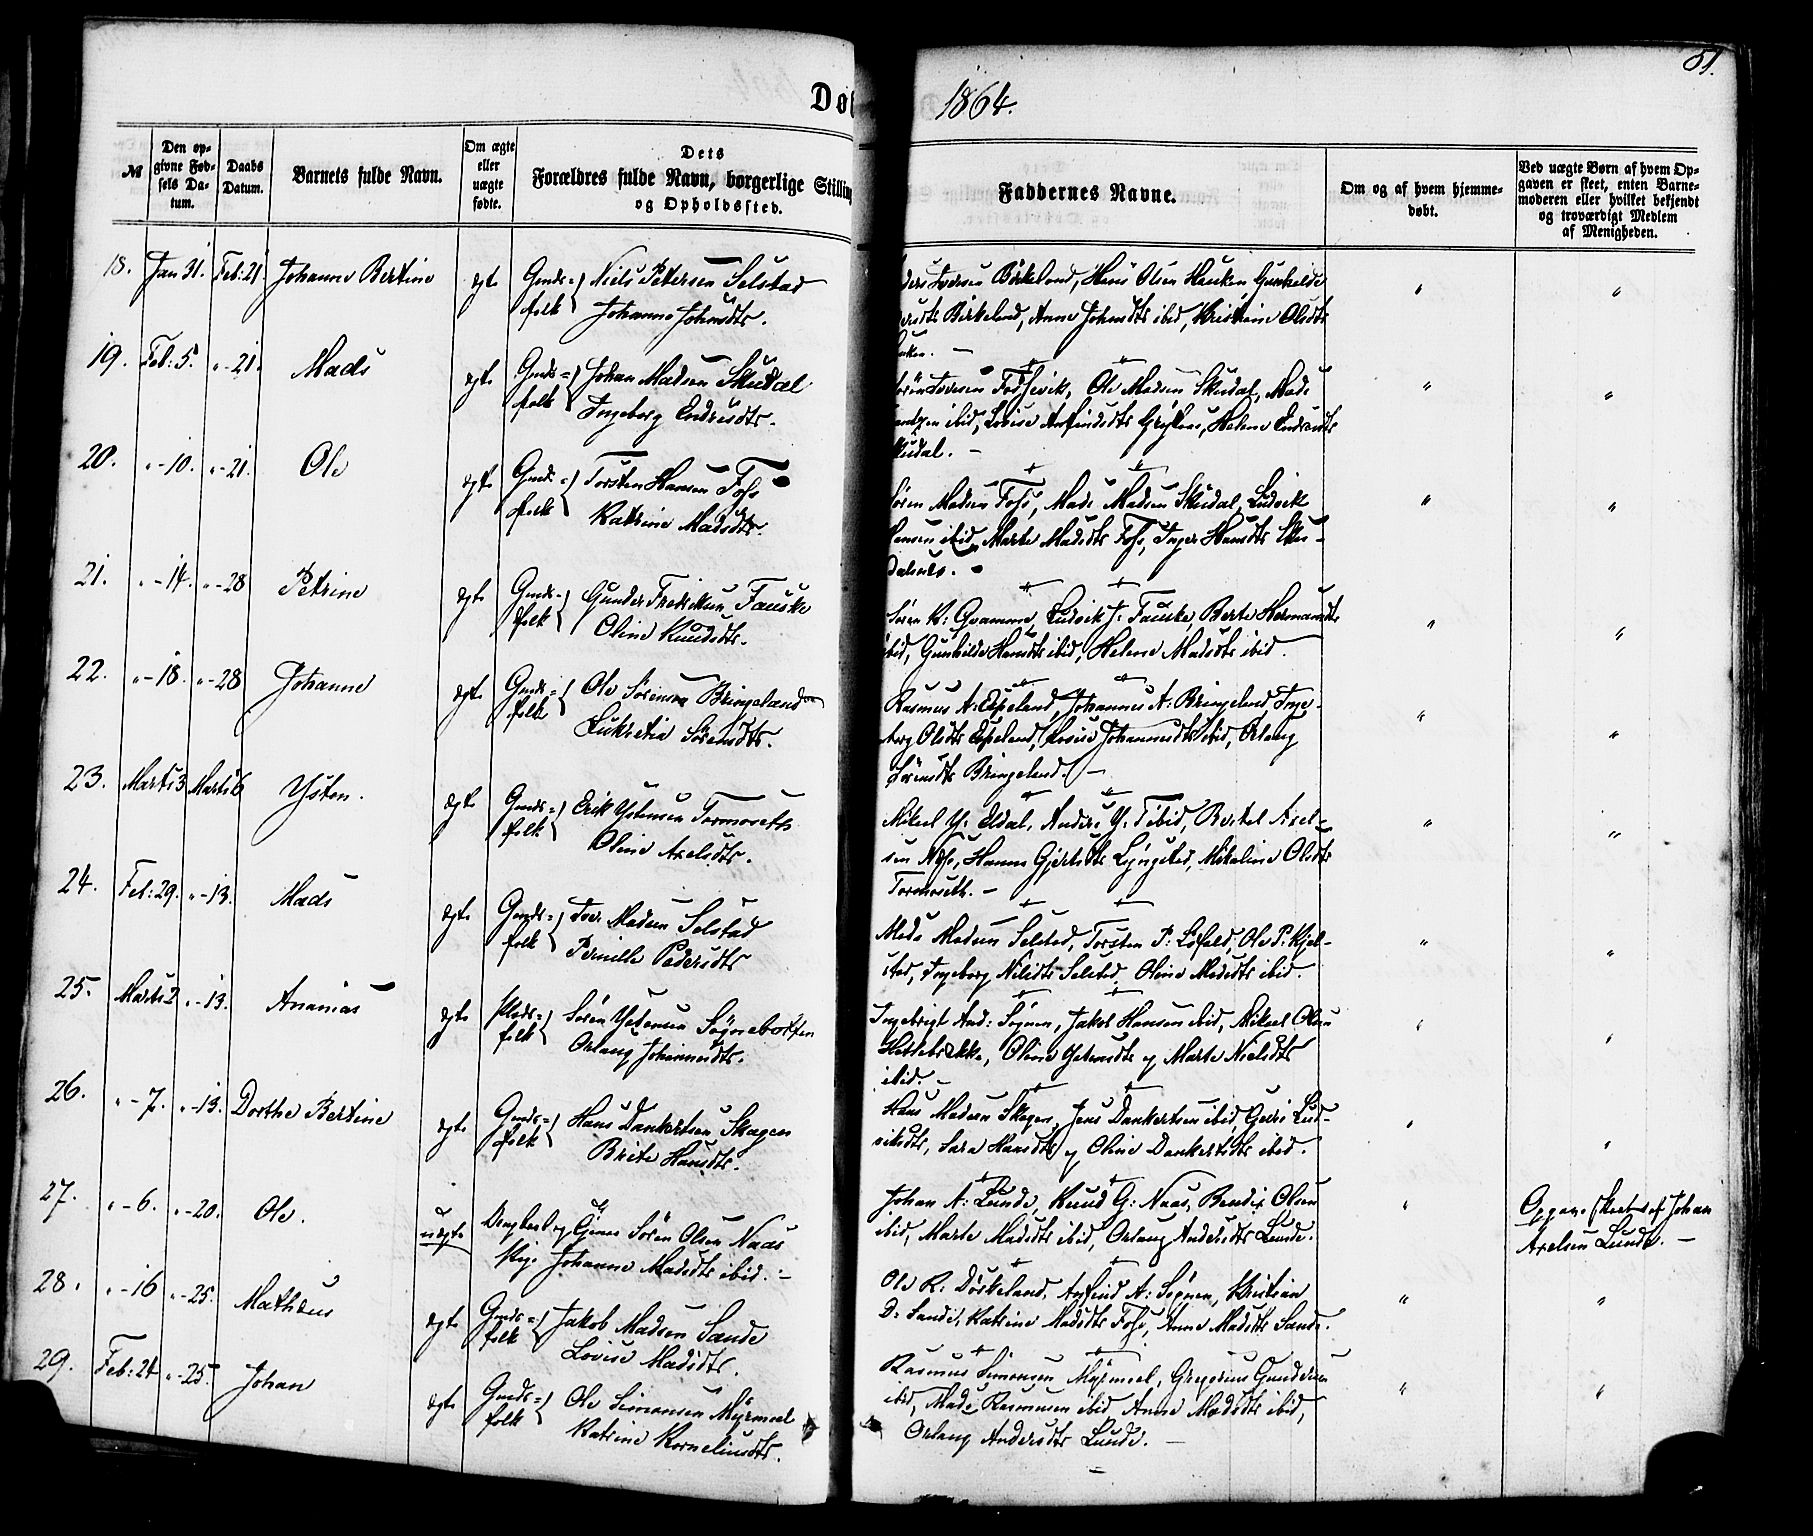 Dø
1864.
51.
№
Den op-
givne Fød-
sels Da-
tum.
Daabs
Datum.
Barnets fulde Navn.
Om ægte
eller
uægte
fødte.
Dets
Forældres fulde Navn, borgerlige Stilling
og Opholdssted.
Faddernes Navne.
Om og af hvem hjemme-
døbt.
Ved uægte Børn af hvem Op-
gaven er skeet, enten Barne-
moderen eller hvilket bekjendt
og troværdigt Medlem
af Menigheden.
18. Jan 31. Feb: 21 Johanne Bertine ægte Gmds= Niels Pettersen Selstad
folk Johanne Johnsdtr.
Iversen Birkeland, Hans Olsen Hauken Gunhilde
Birkeland, Anne Johnsdtr ibid, Kristine Olsdtr
19. Feb: 5. "-21. Mads ægte Gmds= Johan Madsen Skudal
folk Ingeborg Endresdtr.
Iversen Ole Madsen Skudal, Mads
ibid, Lovise Anfindsdtr Helene Endresdtr
Skudal. -
20. "-10. "-21. Ole ægte Gmds= Torsten Hansen Foss
folk Katrine Madsdtr.
Søren Madsen Foss, Mads Madsen Skudal, Ludvik
Hansen ibid, Marte Madsdtr Foss, Inger Hansdtr Sku-
21. "-14. "-28 Petrine ægte Gmds= Gunder Fredriksen Fauske
folk Oline Knudsdtr.
Søren K: Qvamme, Ludvik J: Fauske, Berte Hermansdtr
ibid, Gunhilde Hansdtr ibid, Helene Madsdtr ibid.
22. "-18. "-28 Johanne ægte Gmds= Ole Sørensen Bringeland
folk Lukretia Sørensdtr.
Rasmus A: Espeland, Johannes A: Bringeland Inge-
borg Olsdtr Espeland, Lovise Johannesdtr ibid, Orlaug
Sørensdtr Bringeland. -
23. Marts 3 Marts 6 Ysten. ægte Gmds= Erik Ystensen Tormoseth
folk Oline Axelsdtr.
Mikael Y: Eldal, Anders Y: ibid, Bertel Axel-
sen Hanna Gjertsdtr Lyngstad, Mikaline Olsdtr
Tormoseth. -
24. Feb: 29. "-13. Mads ægte Gmds= Iver Madsen Selstad
folk Pernille Pedersdtr
Mads Madsen Selstad, Torsten P: Løfald, Ole P: Kjel-
stad, Ingeborg Nilsdtr Selstad, Oline Madsdtr ibid.
25. Marts 2 "-13. Ananias ægte Plads=
folk Søren Ystensen Sygnebotten
Orlaug Johannesdtr.
Ingebrigt And: Sygnen, Jakob Hansen ibid, Mikael Olsen
Oline Ystensdtr og Marte Nielsdtr
ibid. -
26. "-7. "-13. Dorthe Bertine ægte Gmds= Hans Dankertsen Skagen
folk Brite Hansdtr.
Hans Madsen Skagen, Jens Dankertsen ibid, Guri Lud-
viksdtr, Sara Hansdtr og Oline Dankertsdtr ibid.
27. "-6. "-20. Ole. uægte Ungkarl og Gjenr Søren Olsen Naas
Pige Johanne Madsdtr ibid. -
Johan A: Lunde, Knud G: Naas, Bendix Olsen
ibid, Marte Madsdtr ibid, Orlaug Andersdtr Lunde.
Opgave skeet af Johan
Axelsen Lunde. -
28. "-16 "-25. Matheus ægte Gmds= Jakob Madsen Sande
folk Lovise Madsdtr.
Ole R: Døskeland, Anfind A: Sygnen, Kristian
D: Sande, Katrine Madsdtr Foss, Anne Madsdtr Sande.
29. Feb: 24 "-25. Johan ægte Gmds= Ole Simonsen Myrmel
folk Katrine Korneliusdtr.
Rasmus Simonsen Myrmel, Gregorius Gundersen
ibid, Mads Rasmusen ibid Anne Madsdtr ibid,
Orlaug Andersdtr Lunde. -